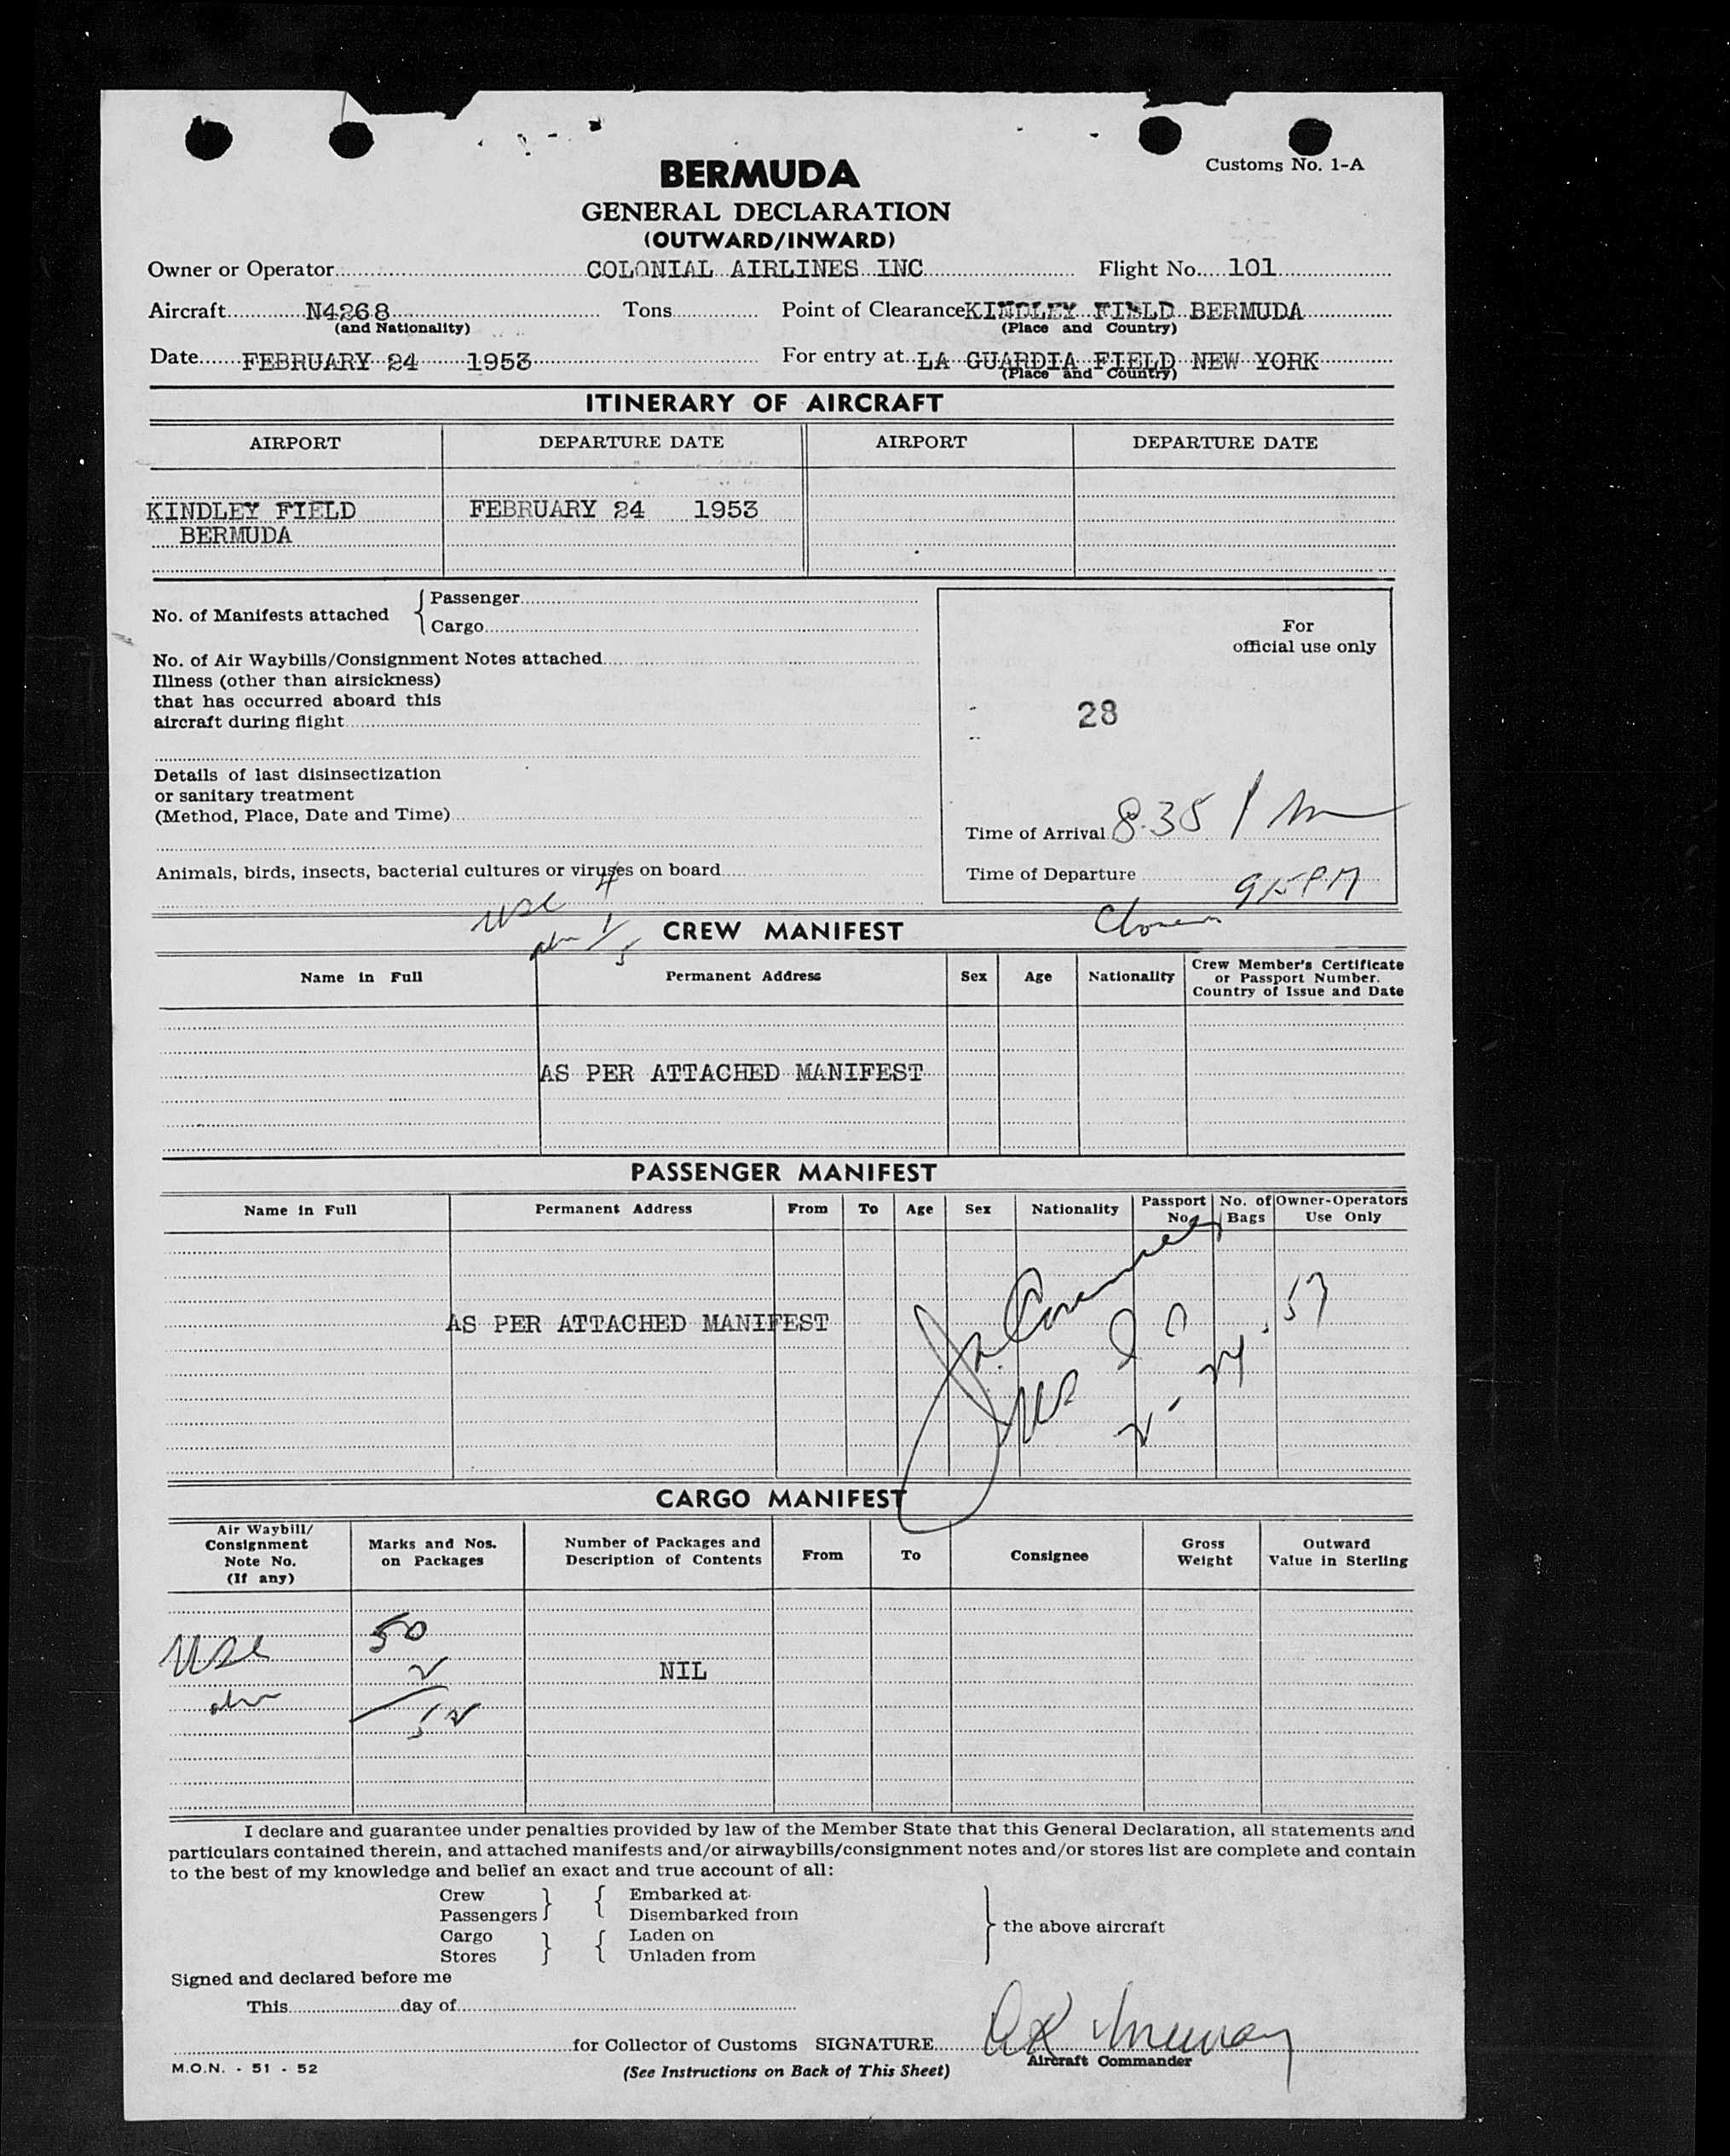 Customs No. 1-A
BERMUDA
GENERAL DECLARATION
(OUTWARD/INWARD)
Owner or Operator COLONIAL AIRLINES INC Flight No. 101
Aircraft N4268 Tons Point of Clearance KINDLEY FIELD BERMUDA
(and Nationality) (Place and Country)
Date FEBRUARY 24 1953 For entry at LA GUARDIA FIELD NEW YORK
(Place and Country)
ITINERARY OF AIRCRAFT
AIRPORT DEPARTURE DATE AIRPORT DEPARTURE DATE
KINDLEY FIELD FEBRUARY 24 1953
BERMUDA
No. of Manifests attached { Passenger
Cargo
No. of Air Waybills/Consignment Notes attached
Illness (other than airsickness)
that has occurred aboard this
aircraft during flight
Details of last disinsectization
or sanitary treatment
(Method, Place, Date and Time)
Animals, birds, insects, bacterial cultures or viruses on board
For
official use only
28
Time of Arrival 8.35
Time of Departure 915 PM
USC 4
1
5
CREW MANIFEST
Name in Full Permanent Address Sex Age Nationality Crew Member's Certificate
or Passport Number.
Country of Issue and Date
AS PER ATTACHED MANIFEST
PASSENGER MANIFEST
Name in Full Permanent Address From To Age Sex Nationality Passport No. No. of Bags Owner-Operators Use Only
AS PER ATTACHED MANIFEST
2-24.53
CARGO MANIFEST
Air Waybill/
Consignment
Note No.
(If any)
Marks and Nos.
on Packages
Number of Packages and
Description of Contents
From To Consignee
Gross
Weight
Outward
Value in Sterling
USC 50
2
52
NIL
I declare and guarantee under penalties provided by law of the Member State that this General Declaration, all statements and
particulars contained therein, and attached manifests and/or airwaybills/consignment notes and/or stores list are complete and contain
to the best of my knowledge and belief an exact and true account of all:
Crew } { Embarked at
Passengers Disembarked from
Cargo } { Laden on
Stores Unladen from
} the above aircraft
Signed and declared before me
This day of
for Collector of Customs SIGNATURE
Aircraft Commander
M.O.N. - 51 - 52
(See Instructions on Back of This Sheet)